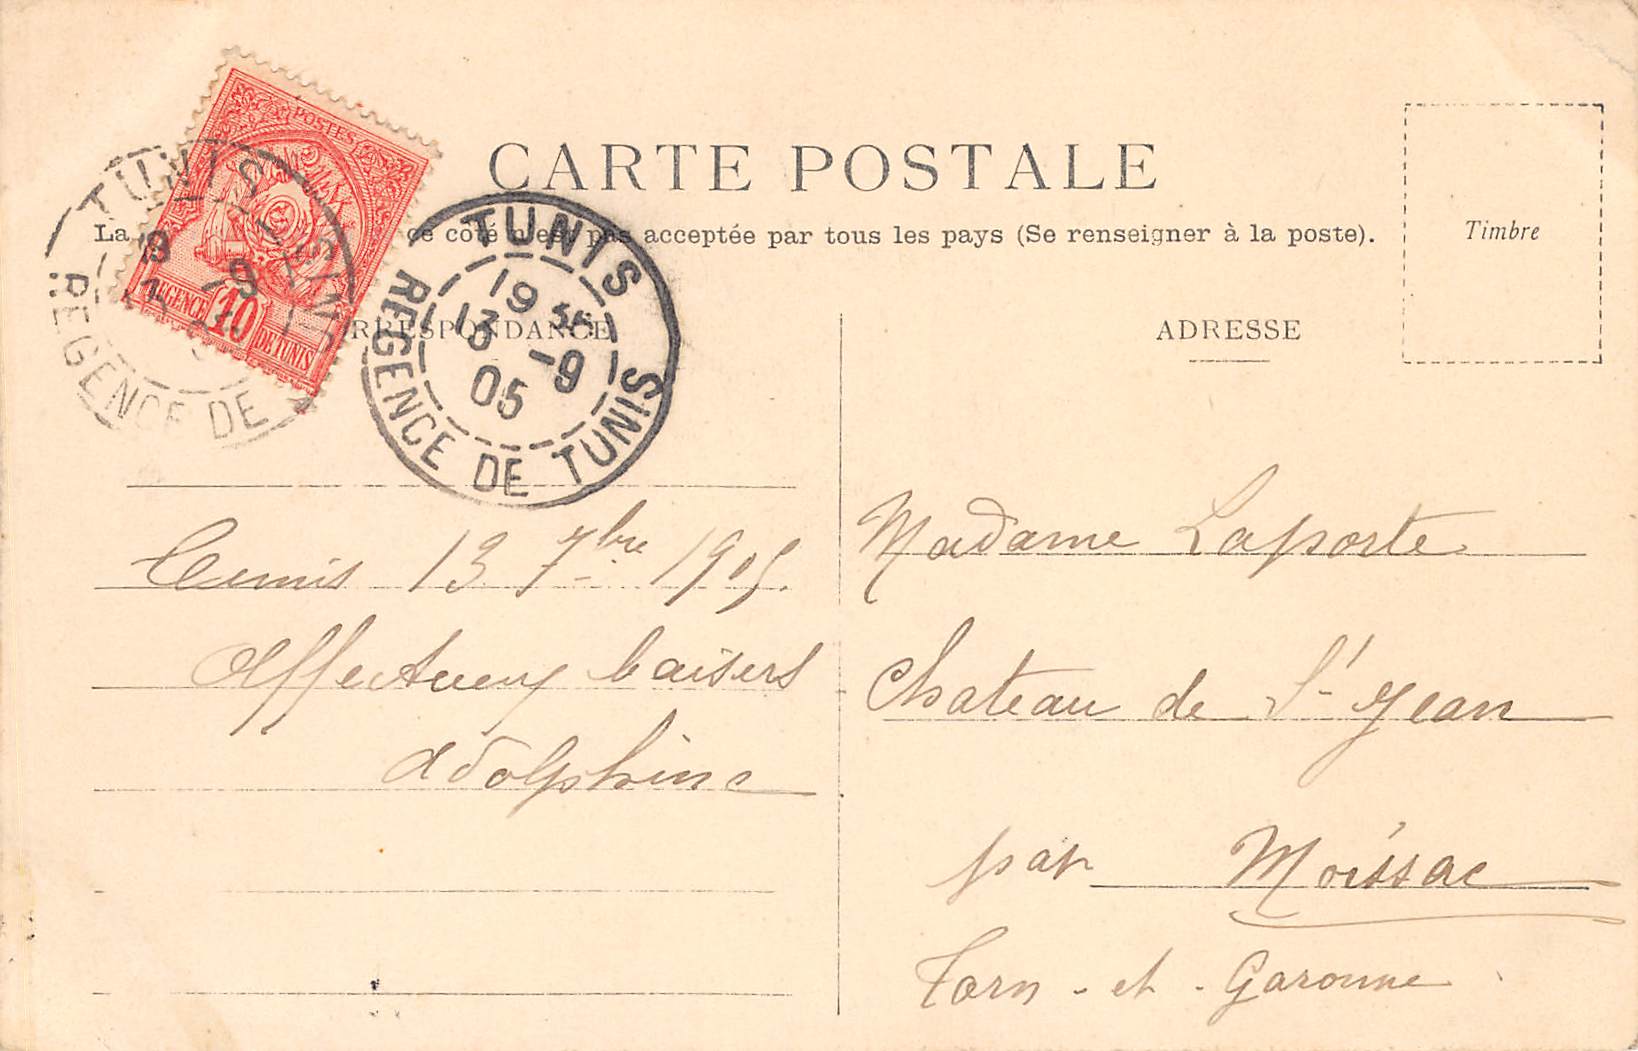 CARTE POSTALE
La ce côté n'est pas acceptée par tous les pays (Se renseigner à la poste).
Timbre
POSTES
REGENCE 10 DE TUNIS
TUNIS
REGENCE DE TUNIS
13 -9
TUNIS
19 30
13 -9
05
REGENCE DE TUNIS
RRESPONDANCE
ADRESSE
Tunis 13 7bre 1905.
Affectueux baisers
Adolphine
Madame Laporte
Chateau de St Jean
par Moissac
Tarn-et-Garonne